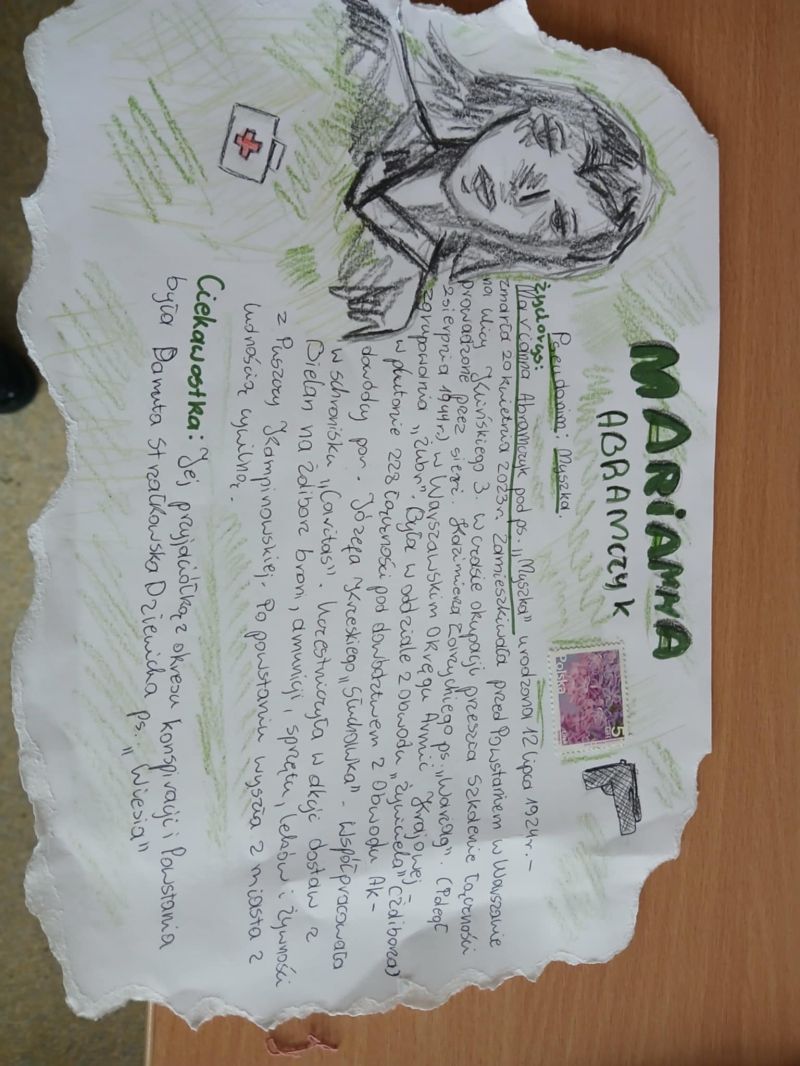 MARIANNA
ABRAMCZYK
Pseudonim: Myszka.
Życiorys:
Marianna Abramczyk pod ps. „Myszka" urodzona 12 lipca 1924r. –
zmarła 20 kwietnia 2023r. Zamieszkiwała przed Powstaniem w Warszawie
na ulicy Kilińskiego 3. w czasie okupacji przeszła szkolenie łączności
prowadzone przez sierż. Kazimierza Zorzychiego ps. „Wareg". (Pdegł
sierpnia 1944r.) w Warszawskim Okręgu Armii Krajowej –
zgrupowania „Żubr". Była w oddziale z obwodu „Żywiciela" (Żoliborz)
w plutonie 228 łączności pod dowództwem z Obwodu AK –
dowódcy por. Józefa Krzeskiego „Słuchawka" – współpracowała
w schronisku „Caritas". Uczestniczyła w akcji dostaw z
Bielan na Żoliborz broni, amunicji, sprzętu, leków i żywności
z Puszczy Kampinowskiej. Po powstaniu wyszła z miasta z
ludnością cywilną.
Ciekawostka: Jej przyjaciółką z okresu konspiracji i Powstania
była Danuta Strzałkowska Dziewicka ps. „Wiesia"
Polska
5